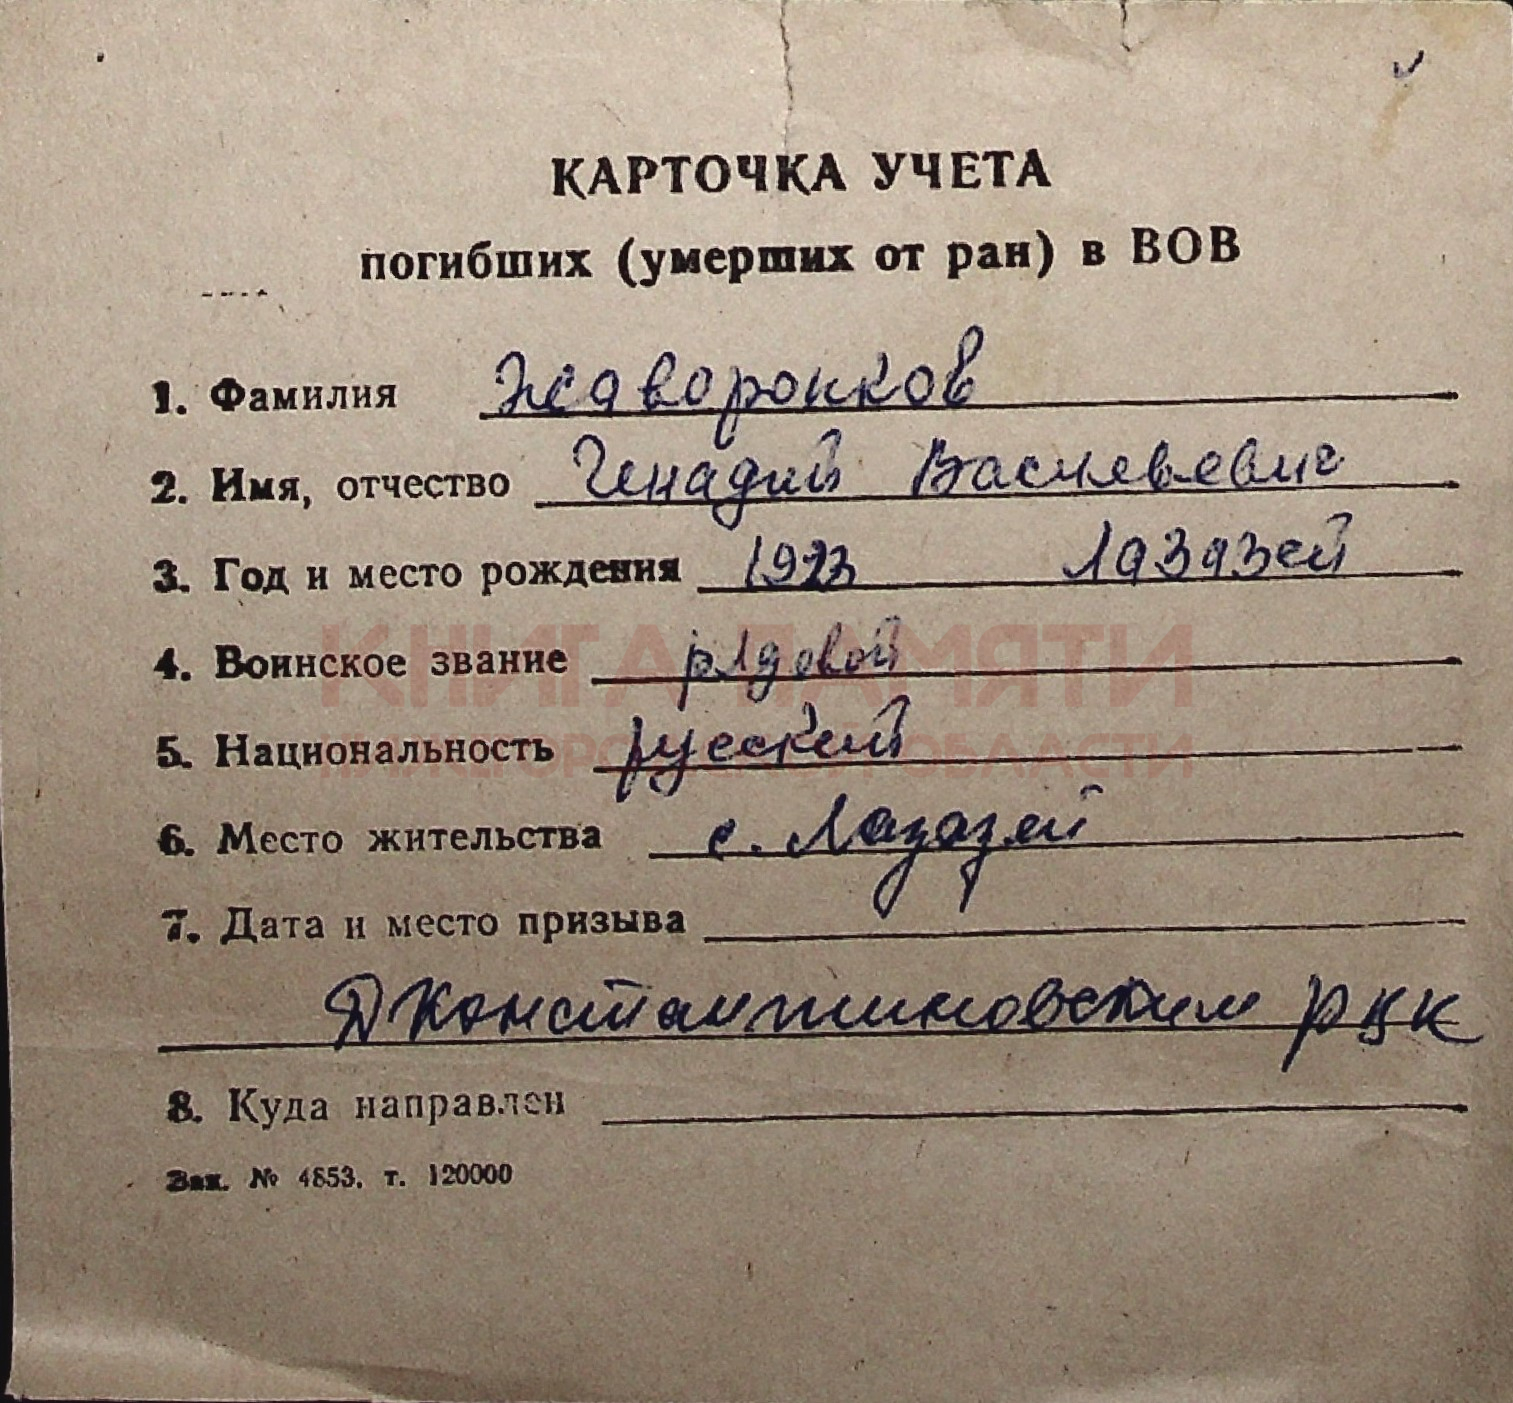 КАРТОЧКА УЧЕТА
погибших (умерших от ран) в ВОВ
1. Фамилия Жаворонков
2. Имя, отчество Генадий Васильевич
3. Год и место рождения 1923 Лазазей
КНИГА ПАМЯТИ
4. Воинское звание рядовой
5. Национальность русский
НИЖЕГОРОДСКОЙ ОБЛАСТИ
6. Место жительства с. Лазазей
7. Дата и место призыва
ДКонстантиновским РВК
8. Куда направлен
Зак. № 4853. т. 120000